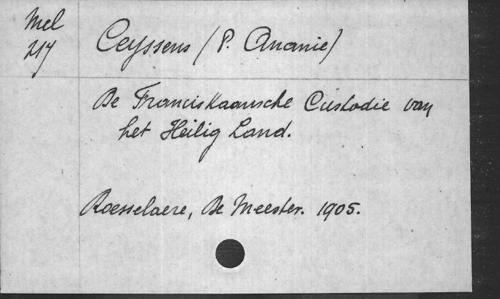 Mel
217
Ceyssens (P. Ananie)
De Franciskaansche Custodie van
het Heilig Land.
Roesselaere, De Meester. 1905.